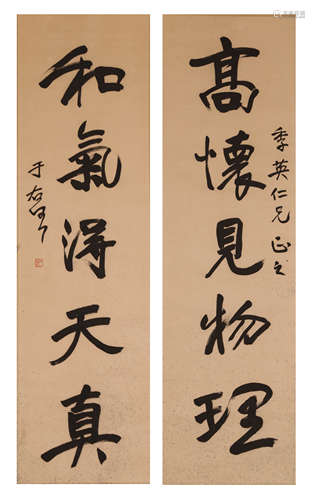 高懷見物理
季英仁兄正之
和氣得天真
于右任